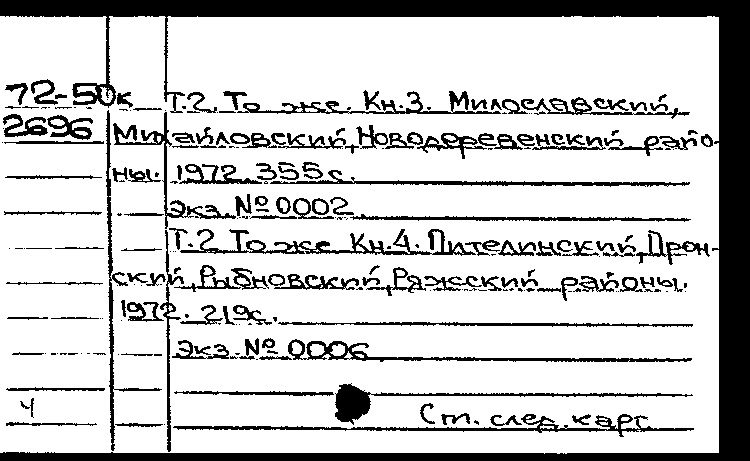 72-50к Т.2. То же. Кн.3. Милославский,
2696 Михайловский, Новодеревенский райо-
ны. 1972. 355 с.
Экз. № 0002.
Т.2 То же Кн.4. Пителинский, Прон-
ский, Рыбновский, Ряжсский районы.
1972. 219с.
Экз. № 0006
4 Cm. след. карт